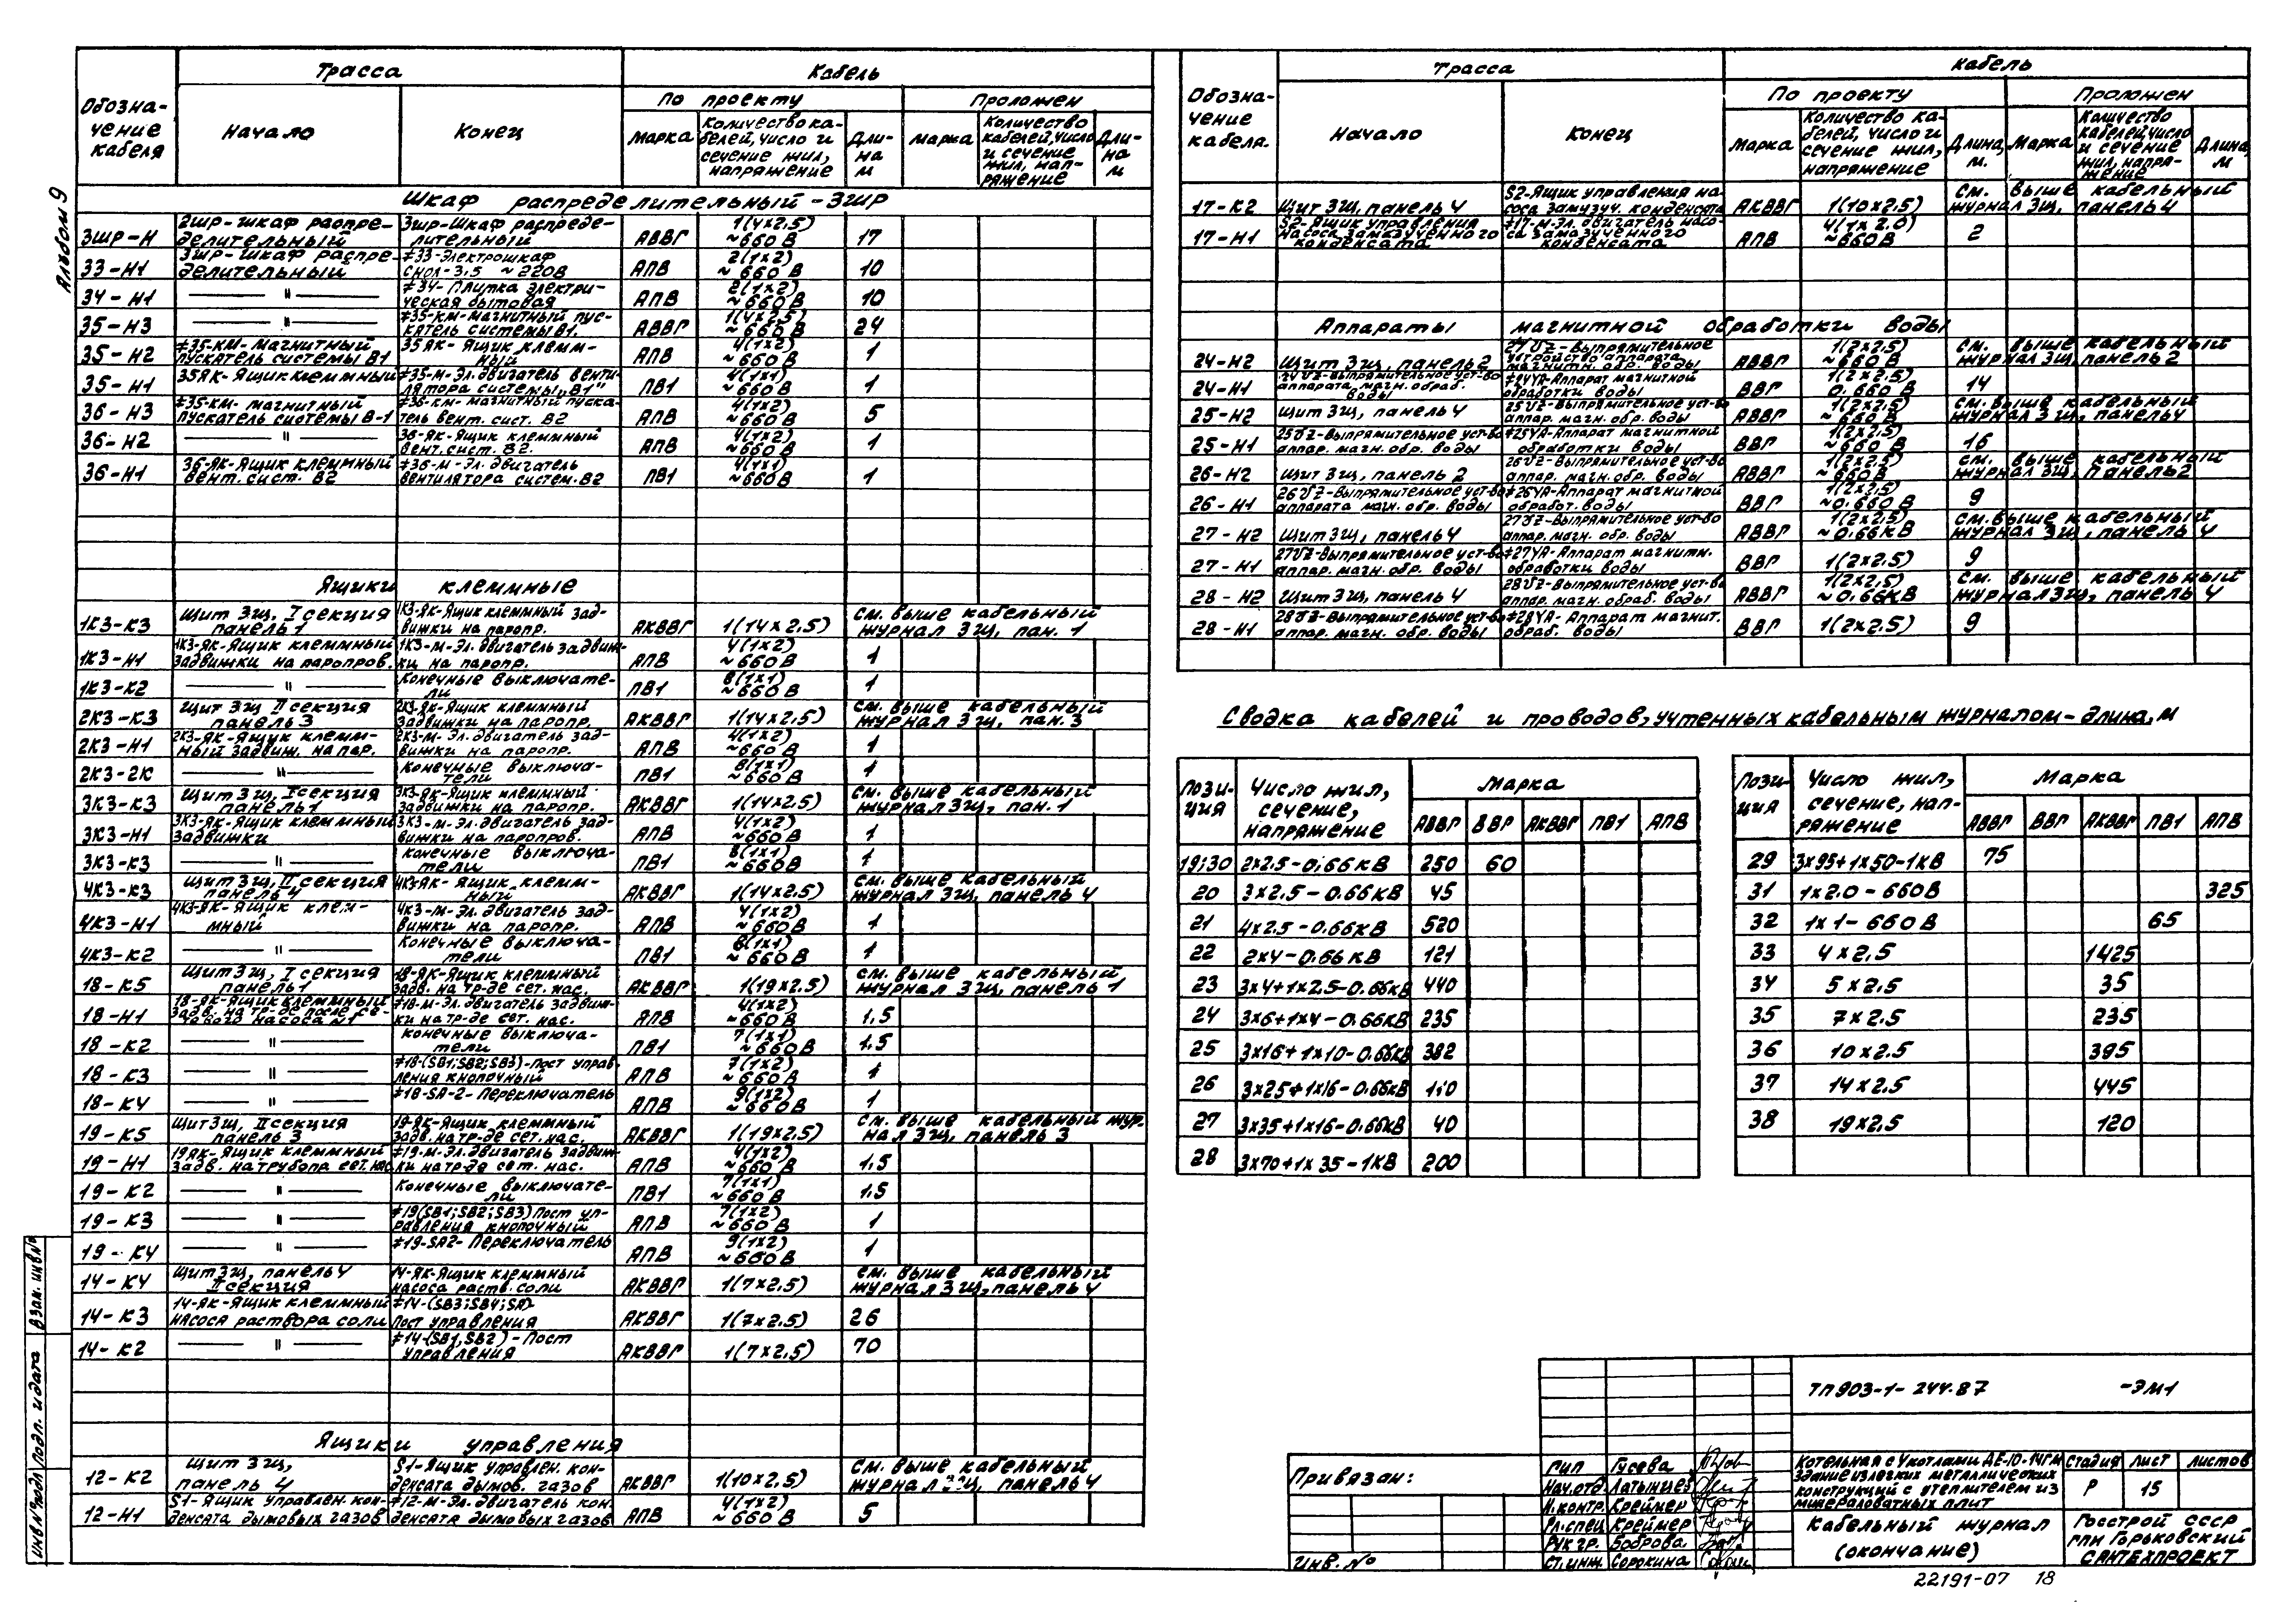 Альбом 9
Обозна-чение кабеля | Трасса | Кабель
Начало | Конец | По проекту | Проложен
Марка | Количество ка-белей, число и сечение жил, напряжение | Дли-на м | Марка | Количество кабелей, число и сечение жил, нап-ряжение | Дли-на м
Шкаф распределительный - 3шр
3шр-Н | 2шр-шкаф распре-делительный | 3шр-Шкаф распреде-лительный | АВВГ | 1(4х2.5) ~660 В | 17
33-Н1 | 3шр-шкаф распре-делительный | ≠33-Электрошкаф СНОЛ-3,5 ~220В | АПВ | 2(1х2) ~660 В | 10
34-Н1 | " | ≠34-Плитка электри-ческая бытовая | АПВ | 2(1х2) ~660 В | 10
35-Н3 | " | ≠35-КМ-Магнитный пус-катель системы В1. | АВВГ | 1(4х2,5) ~660 В | 24
35-Н2 | ≠35-КМ-Магнитный пускатель системы В1 | 35ЯК-Ящик клемм-ный | АПВ | 4(1х2) ~660 В | 1
35-Н1 | 35ЯК-Ящик клеммный | ≠35-М-Эл.двигатель венти-лятора системы „В1" | ПВ1 | 4(1х1) ~660 В | 1
36-Н3 | ≠35-КМ-магнитный пускатель системы В-1 | ≠36-КМ-магнитный пуска-тель вент. сист. В2 | АПВ | 4(1х2) ~660 В | 5
36-Н2 | " | 36-ЯК-Ящик клеммный вент.сист. В2. | АПВ | 4(1х2) ~660 В | 1
36-Н1 | 36-ЯК-Ящик клеммный вент. сист. В2 | ≠36-М-Эл. двигатель вентилятора систем.В2 | ПВ1 | 4(1х1) ~660 В | 1
Ящики клеммные
1КЗ-К3 | Щит 3щ, I секция панель 1 | 1КЗ-ЯК-Ящик клеммный зад-вижки на паропр. | АКВВГ | 1(14х2.5) | См. выше кабельный журнал 3щ, пан. 1
1КЗ-Н1 | 1КЗ-ЯК-Ящик клеммный задвижки на паропров. | 1КЗ-М-Эл. двигатель задвиж-ки на паропр. | АПВ | 4(1х2) ~660 В | 1
1КЗ-К2 | " | Конечные выключате-ли | ПВ1 | 8(1х1) ~660 В | 1
2КЗ-К3 | Щит 3щ II секция панель 3 | 2КЗ-ЯК-Ящик клеммный задвижки на паропр. | АКВВГ | 1(14х2.5) | См. выше кабельный журнал 3щ, пан. 3
2КЗ-Н1 | 2КЗ-ЯК-Ящик клемм-ный задвиж. на пар. | 2КЗ-М-Эл. двигатель зад-вижки на паропр. | АПВ | 4(1х2) ~660 В | 1
2КЗ-2К | " | Конечные выключа-тели | ПВ1 | 8(1х1) ~660 В | 1
3КЗ-К3 | Щит 3щ, I секция панель 1 | 3КЗ-ЯК-Ящик клеммный задвижки на паропр. | АКВВГ | 1(14х2,5) | См. выше кабельный журнал 3щ, пан. 1
3КЗ-Н1 | 3КЗ-ЯК-Ящик клеммный задвижки | 3КЗ-М-Эл. двигатель зад-вижки на паропров. | АПВ | 4(1х2) ~660 В | 1
3КЗ-К3 | " | Конечные выключа-тели | ПВ1 | 8(1х1) ~660 В | 1
4КЗ-К3 | Щит 3щ, II секция панель 4 | 4КЗ-ЯК-Ящик клемм-ный | АКВВГ | 1(14х2.5) | См. выше кабельный журнал 3щ, панель 4
4КЗ-Н1 | 4КЗ-ЯК-Ящик клем-мный | 4КЗ-М-Эл. двигатель зад-вижки на паропр. | АПВ | 4(1х2) ~660 В | 1
4КЗ-К2 | " | Конечные выключа-тели | ПВ1 | 8(1х1) ~660 В | 1
18-К5 | Щит 3щ, I секция панель 1 | 18-ЯК-Ящик клеммный задв. на тр-де сет. нас. | АКВВГ | 1(19х2.5) | См. выше кабельный журнал 3щ, панель 1
18-Н1 | 18-ЯК-Ящик клеммный задв. на тр-де после се-тевого насоса №1 | ≠18-М-Эл. двигатель задвиж-ки на тр-де сет. нас. | АПВ | 4(1х2) ~660 В | 1,5
18-К2 | " | Конечные выключа-тели | ПВ1 | 7(1х1) ~660 В | 1.5
18-К3 | " | ≠18-(SB1;SB2;SB3)-Пост управ-ления кнопочный | АПВ | 7(1х2) ~660 В | 1
18-К4 | " | ≠18-SA-2-Переключатель | АПВ | 9(1х2) ~660 В | 1
19-К5 | Щит 3щ, II секция панель 3 | 19-ЯК-Ящик клеммный задв. на тр-де сет. нас. | АКВВГ | 1(19х2.5) | См. выше кабельный жур. нал 3щ, панель 3
19-Н1 | 19ЯК-Ящик клеммный задв. на трубопр. сет. нас | ≠19-М-Эл. двигатель задвиж-ки на тр-де сет. нас. | АПВ | 4(1х2) ~660 В | 1,5
19-К2 | " | Конечные выключате-ли | ПВ1 | 7(1х1) ~660 В | 1.5
19-К3 | " | ≠19(SB1;SB2;SB3)Пост уп-равления кнопочный | АПВ | 7(1х2) ~660 В | 1
19-К4 | " | ≠19-SA2-Переключатель | АПВ | 9(1х2) ~660 В | 1
14-К4 | Щит 3щ, панель 4 II секция | 14-ЯК-Ящик клеммный насоса раств. соли | АКВВГ | 1(7х2.5) | см. выше кабельный журнал 3щ, панель 4
14-К3 | 14-ЯК-Ящик клеммный насоса раствора соли | ≠14-(SB3;SB4;SA)- Пост управления | АКВВГ | 1(7х2.5) | 26
14-К2 | " | ≠14-(SB1,SB2)-Пост управления | АКВВГ | 1(7х2.5) | 70
Ящики управления
12-К2 | Щит 3щ, панель 4 | S1-Ящик управлен. кон-денсата дымов. газов | АКВВГ | 1(10х2.5) | См. выше кабельный журнал 3щ, панель 4
12-Н1 | S1-Ящик управлен. кон-денсата дымовых газов | ≠12-М-Эл. двигатель кон-денсата дымовых газов | АПВ | 4(1х2) ~660 В | 5
Обозна-чение кабеля. | Трасса | Кабель
Начало | Конец | По проекту | Проложен
Марка | Количество ка-белей, число и сечение жил, напряжение | Длина, м. | Марка | Количество кабелей, число и сечение жил, напря-жение | Длина, м
17-К2 | Щит 3щ, панель 4 | S2-Ящик управления на-соса замазуч. конденсата | АКВВГ | 1(10х2.5) | См. выше кабельный журнал 3щ, панель 4
17-Н1 | S2-Ящик управления насоса замазученного конденсата | ≠17-М-Эл. двигатель насо-са замазученного конденсата | АПВ | 4(1х2.0) ~660В | 2
Аппараты магнитной обработки воды
24-Н2 | Щит 3щ, панель 2 | устройство аппарата магнитн. обр. воды | АВВГ | 1(2х2.5) ~660 В | См. выше кабельный журнал 3щ, панель 2
24-Н1 | аппарата магн. обраб. воды | ≠24УА-Аппарат магнитной обработки воды | ВВГ | 1(2х2.5) 0.660 В | 14
25-Н2 | Щит 3щ, панель 4 | 25УZ-Выпрямительное уст-во аппар. магн. обр. воды | АВВГ | 1(2х2.5) ~660 В | См. выше кабельный журнал 3щ, панель 4
25-Н1 | 25УZ-Выпрямительное уст-во аппар. магн. обр. воды | ≠25УА-Аппарат магнитной обработки воды | ВВГ | 1(2х2.5) ~660 В | 16
26-Н2 | Щит 3щ, панель 2 | 26УZ-Выпрямительное уст-во аппар. магн. обр. воды | АВВГ | 1(2х2.5) ~660В | См. выше кабельный журнал 3щ, панель 2
26-Н1 | 26УZ-Выпрямительное уст-во аппарата магн. обр. воды | ≠26УА-Аппарат магнитной обработ. воды | ВВГ | 1(2х2,5) ~0.660 В | 9
27-Н2 | Щит 3щ, панель 4 | 27УZ-Выпрямительное уст-во аппар. магн. обр. воды | АВВГ | 1(2х2.5) ~0.66кВ | См. выше кабельный журнал 3щ, панель 4
27-Н1 | 27УZ-Выпрямительное уст-во аппар. магн. обр. воды | ≠27УА-Аппарат магнитн. обработки воды | ВВГ | 1(2х2.5) | 9
28-Н2 | Щит 3щ, панель 4 | 28УZ-Выпрямительное уст-во аппар. магн. обраб. воды | АВВГ | 1(2х2,5) ~0.66кВ | См. выше кабельный журнал 3щ, панель 4
28-Н1 | 28УZ-Выпрямительное уст-во аппар. магн. обр. воды | ≠28УА-Аппарат магнит. обраб. воды | ВВГ | 1(2х2.5) | 9
Сводка кабелей и проводов, учтенных кабельным журналом-длина, м
Пози-ция | Число жил, сечение, напряжение | Марка
АВВГ | ВВГ | АКВВГ | ПВ1 | АПВ
19;30 | 2х2.5-0.66кВ | 250 | 60
20 | 3х2.5-0.66кВ | 45
21 | 4х2.5-0.66кВ | 520
22 | 2х4-0.66кВ | 121
23 | 3х4+1х2.5-0.66кВ | 440
24 | 3х6+1х4-0.66кВ | 235
25 | 3х16+1х10-0.66кВ | 382
26 | 3х25+1х16-0.66кВ | 110
27 | 3х35+1х16-0.66кВ | 40
28 | 3х70+1х35-1кВ | 200
Пози-ция | Число жил, сечение, нап-ряжение | Марка
АВВГ | ВВГ | АКВВГ | ПВ1 | АПВ
29 | 3х95+1х50-1кВ | 75
31 | 1х2.0-660В | 325
32 | 1х1-660 В | 65
33 | 4х2.5 | 1425
34 | 5х2.5 | 35
35 | 7х2.5 | 235
36 | 10х2.5 | 395
37 | 14х2.5 | 445
38 | 19х2.5 | 120
ТП903-1-244.87 -ЭМ1
Привязан:
Инв. №
ГИП Гусева
Нач.отд. Латынцев
Н.контр. Креймер
Гл.спец Креймер
Рук гр. Боброва
Ст.инж. Сорокина
Котельная с 4 котлами ДЕ-10-14ГМ
Здание из легких металлических
конструкций с утеплителем из
минераловатных плит
Стадия Лист Листов
Р 15
Кабельный журнал
(окончание)
Госстрой СССР
ГПИ Горьковский
САНТЕХПРОЕКТ
22191-07 18
Инв № подл Подп. и дата Взам. инв №